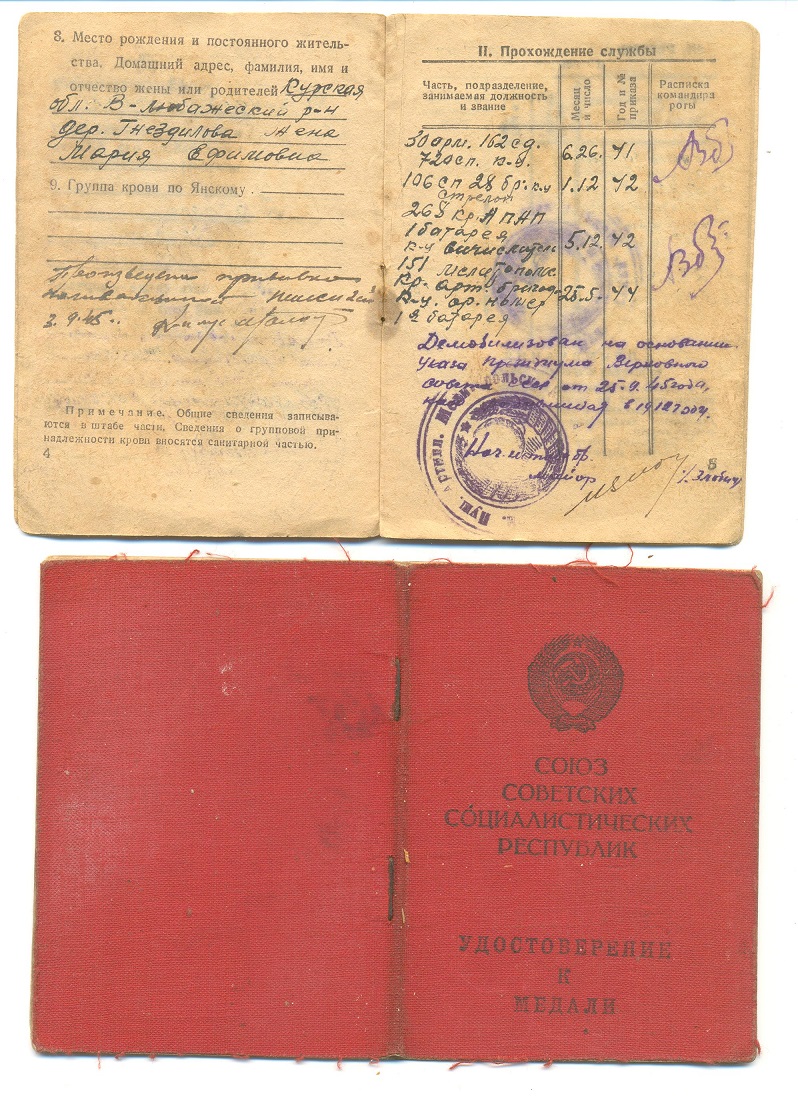 8. Место рождения и постоянного житель-
ства. Домашний адрес, фамилия, имя и
отчество жены или родителей Курская
обл. В-Любажеский р-н
дер. Гнездилова жена
Мария Ефимовна
9. Группа крови по Янскому.
3.9.45
Примечание. Общие сведения записыва-
ются в штабе части. Сведения о групповой при-
надлежности крови вносятся санитарной частью.
4
II. Прохождение службы
Часть, подразделение, занимаемая должность и звание
Месяц и число
Год и № приказа
Расписка командира роты
30 арм. 162 сд.
720 сп. к-ц. 6.26. 41
106 сп 28 бр. к-ц 1.12 42
стрелок
268 кр. АПАП
1 батарея
к-ц вичислитель 5.12. 42
151 мелитополс
кр. арт. бригада
к-ц. ор. номер 25.5. 44
1я батарея
Демобилизован на основании
указа Президиума Верховного
совета от 25.9.45 года,
майор
5
СОЮЗ
СОВЕТСКИХ
СОЦИАЛИСТИЧЕСКИХ
РЕСПУБЛИК
УДОСТОВЕРЕНИЕ
К
МЕДАЛИ